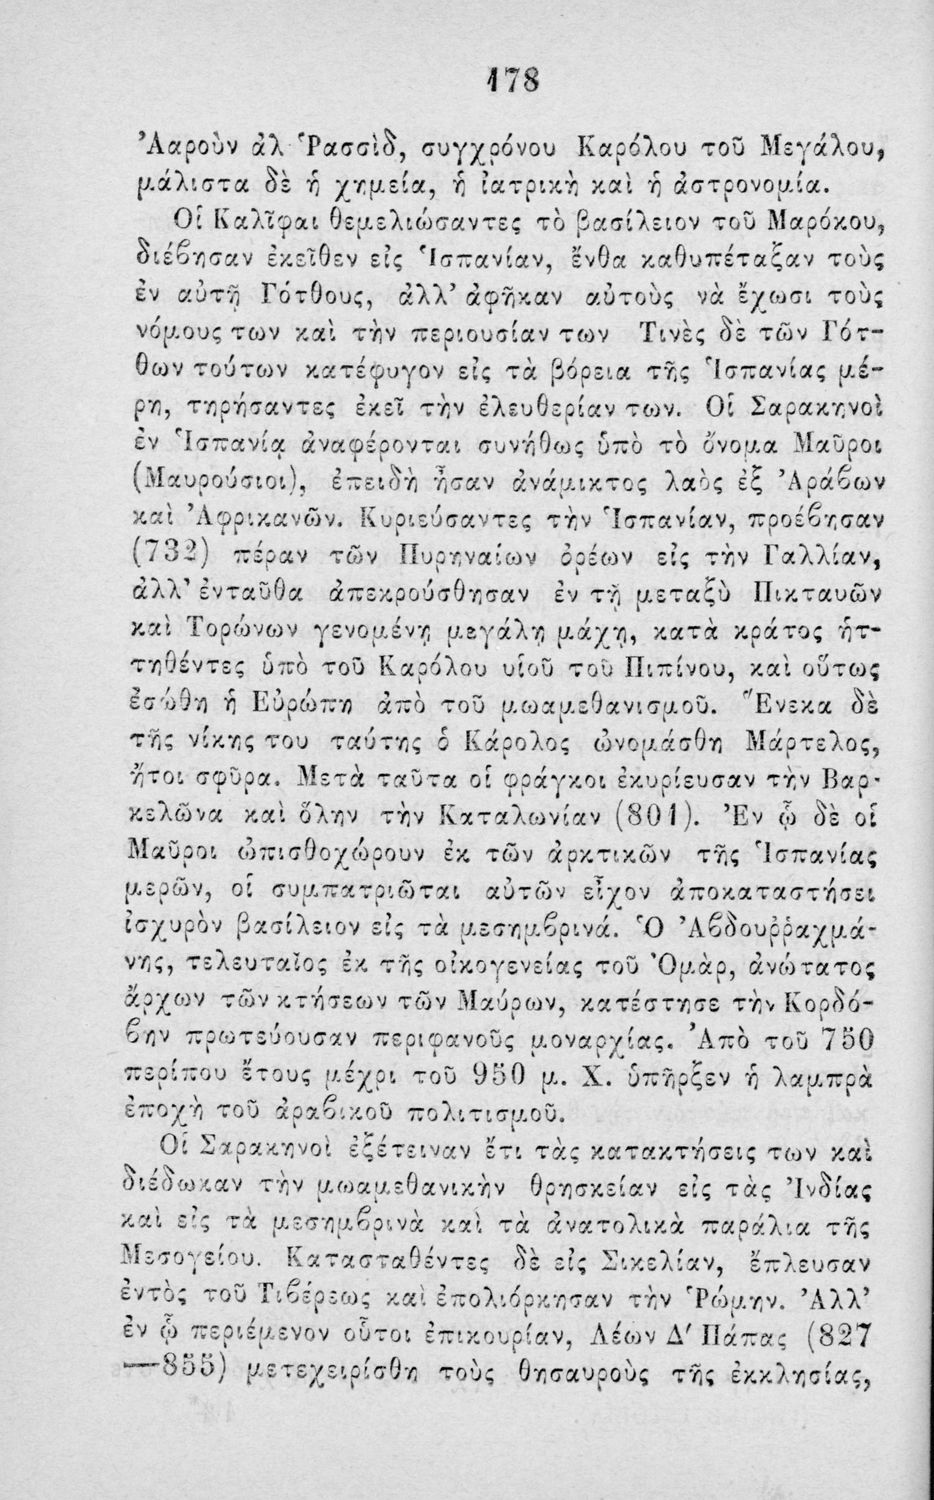 178
Ἀαροὺν ἀλ Ῥασσὶδ, συγχρόνου Καρόλου τοῦ Μεγάλου,
μάλιστα δὲ ἡ χημεία, ἡ ἰατρικὴ καὶ ἡ ἀστρονομία.
Οἱ Καλῖφαι θεμελιώσαντες τὸ βασίλειον τοῦ Μαρόκου,
διέβησαν ἐκεῖθεν εἰς Ἱσπανίαν, ἔνθα καθυπέταξαν τοὺς
ἐν αὐτῇ Γότθους, ἀλλ’ ἀφῆκαν αὐτοὺς νὰ ἔχωσι τοὺς
νόμους των καὶ τὴν περιουσίαν των Τινὲς δὲ τῶν Γότ-
θων τούτων κατέφυγον εἰς τὰ βόρεια τῆς Ἱσπανίας μέ-
ρη, τηρήσαντες ἐκεῖ τὴν ἐλευθερίαν των. Οἱ Σαρακηνοὶ
ἐν Ἱσπανίᾳ ἀναφέρονται συνήθως ὑπὸ τὸ ὄνομα Μαῦροι
(Μαυρούσιοι), ἐπειδὴ ἦσαν ἀνάμικτος λαὸς ἐξ Ἀράβων
καὶ Ἀφρικανῶν. Κυριεύσαντες τὴν Ἱσπανίαν, προέβησαν
(732) πέραν τῶν Πυρηναίων ὀρέων εἰς τὴν Γαλλίαν,
ἀλλ’ ἐνταῦθα ἀπεκρούσθησαν ἐν τῇ μεταξὺ Πικταυῶν
καὶ Τορώνων γενομένῃ μεγάλῃ μάχῃ, κατὰ κράτος ἡτ-
τηθέντες ὑπὸ τοῦ Καρόλου υἱοῦ τοῦ Πιπίνου, καὶ οὕτως
ἐσώθη ἡ Εὐρώπη ἀπὸ τοῦ μωαμεθανισμοῦ. Ἕνεκα δὲ
τῆς νίκης του ταύτης ὁ Κάρολος ὠνομάσθη Μάρτελος,
ἤτοι σφῦρα. Μετὰ ταῦτα οἱ φράγκοι ἐκυρίευσαν τὴν Βαρ-
κελῶνα καὶ ὅλην τὴν Καταλωνίαν (801). Ἐν ᾧ δὲ οἱ
Μαῦροι ὠπισθοχώρουν ἐκ τῶν ἀρκτικῶν τῆς Ἱσπανίας
μερῶν, οἱ συμπατριῶται αὐτῶν εἶχον ἀποκαταστήσει
ἰσχυρὸν βασίλειον εἰς τὰ μεσημβρινά. Ὁ Ἀβδουῤῥαχμά-
νης, τελευταῖος ἐκ τῆς οἰκογενείας τοῦ Ὀμὰρ, ἀνώτατος
ἄρχων τῶν κτήσεων τῶν Μαύρων, κατέστησε τὴν Κορδό-
βην πρωτεύουσαν περιφανοῦς μοναρχίας. Ἀπὸ τοῦ 750
περίπου ἔτους μέχρι τοῦ 950 μ. Χ. ὑπῆρξεν ἡ λαμπρὰ
ἐποχὴ τοῦ ἀραβικοῦ πολιτισμοῦ.
Οἱ Σαρακηνοὶ ἐξέτειναν ἔτι τὰς κατακτήσεις των καὶ
διέδωκαν τὴν μωαμεθανικὴν θρησκείαν εἰς τὰς Ἰνδίας
καὶ εἰς τὰ μεσημβρινὰ καὶ τὰ ἀνατολικὰ παράλια τῆς
Μεσογείου. Κατασταθέντες δὲ εἰς Σικελίαν, ἔπλευσαν
ἐντὸς τοῦ Τιβέρεως καὶ ἐπολιόρκησαν τὴν Ῥώμην. Ἀλλ’
ἐν ᾧ περιέμενον οὗτοι ἐπικουρίαν, Λέων Δ΄ Πάπας (827
—855) μετεχειρίσθη τοὺς θησαυροὺς τῆς ἐκκλησίας,